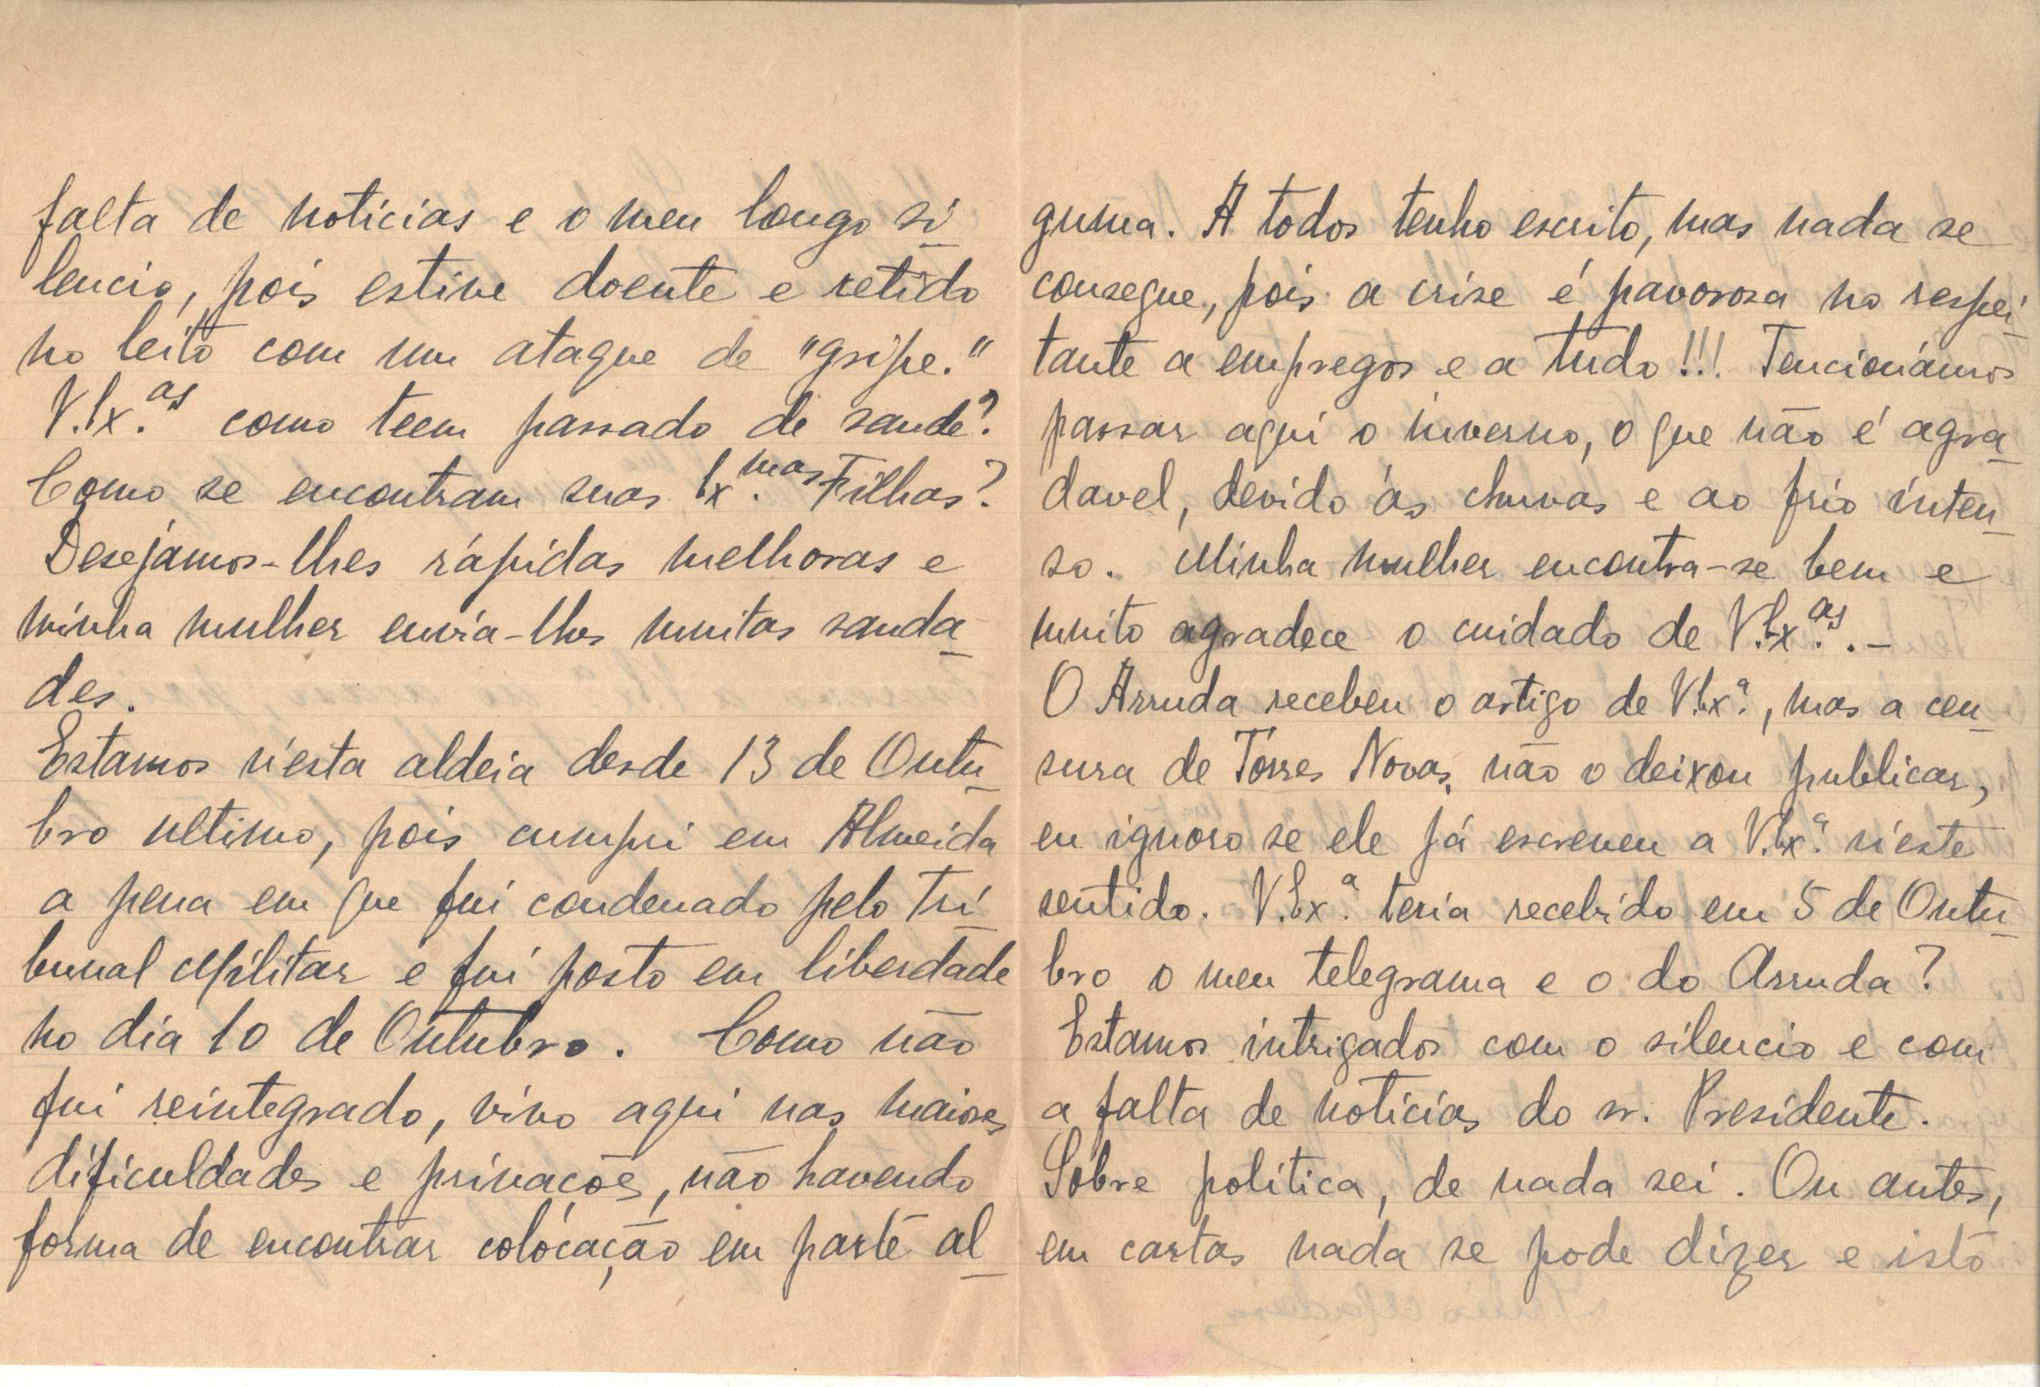 falta de noticias e o meu longo si
lencio, pois estive doente e retido
no leito com um ataque de "gripe."
V.Ex.as como teem passado de saude?
Como se encontram suas Ex.mas Filhas?
Desejámos-lhes rápidas melhoras e
minha mulher envia-lhes muitas sauda
des.
Estamos n'esta aldeia desde 13 de Outu
bro ultimo, pois cumpri em Almeida
a pena em que fui condenado pelo Tri
bunal Militar e fui posto em liberdade
no dia 10 de Outubro. Como não
fui reintegrado, vivo aqui nas maiores
dificuldades e privacões, não havendo
forma de encontrar colócação em parte al
guma. A todos tenho escrito, mas nada se
consegue, pois a crise é pavorosa no respei
tante a empregos e a tudo!!! Tencionámos
passar aqui o inverno, o que não é agra
davel, devido ás chuvas e ao frio inten
so. Minha mulher encontra-se bem e
muito agradece o cuidado de V.Ex.as. -
O Arruda recebeu o artigo de V.Ex.a, mas a cen
sura de Tôrres Novas, não o deixou publicar,
eu ignoro se ele já escreveu a V.Ex.a n'este
sentido. V.Ex.a teria recebido em 5 de Outu
bro o meu telegrama e o do Arruda?
Estamos intrigados com o silencio e com
a falta de noticias do sr. Presidente.
Sobre politica, de nada sei. Ou antes,
em cartas nada se pode dizer e isto